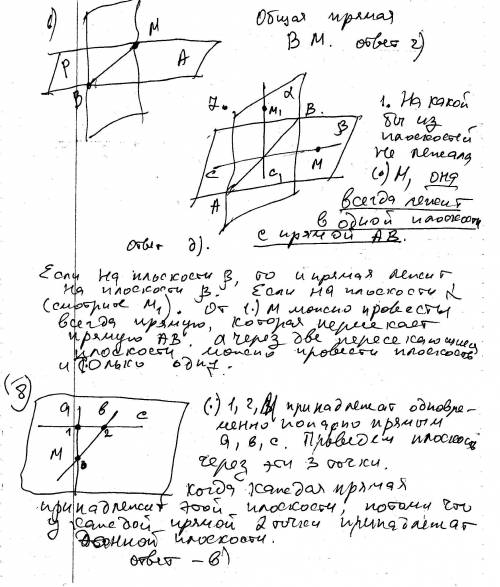 6)
М
Общая прямая
В М. ответ г)
P
A
В
7.
α
М₁
В.
β
М
С
С₁
А
1. На какой
бы из
плоскостей
не лежала
(·) М, она
всегда лежит
в одной плоскости
с прямой АВ.
ответ д).
Если на плоскости β, то и прямая лежит
на плоскости β. Если на плоскости α
(смотрите М₁). От (·) М можно провести
всегда прямую, которая пересекает
прямую АВ. а через две пересекающиеся
плоскости можно провести плоскость
и только одну.
8)
а в с
1 2
М
3
(·) 1, 2, М принадлежат одновре-
менно попарно прямым
а, в, с. Проведем плоскость
через эти 3 точки.
когда каждая прямая
принадлежит этой плоскости, потому что
у каждой прямой 2 точки принадлежат
данной плоскости.
ответ – в)